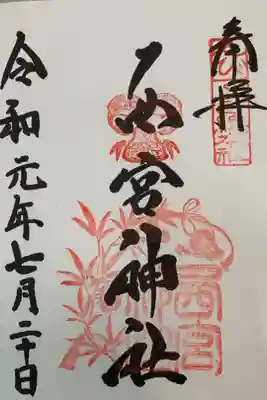 奉拝
西宮神社
令和元年七月二十日